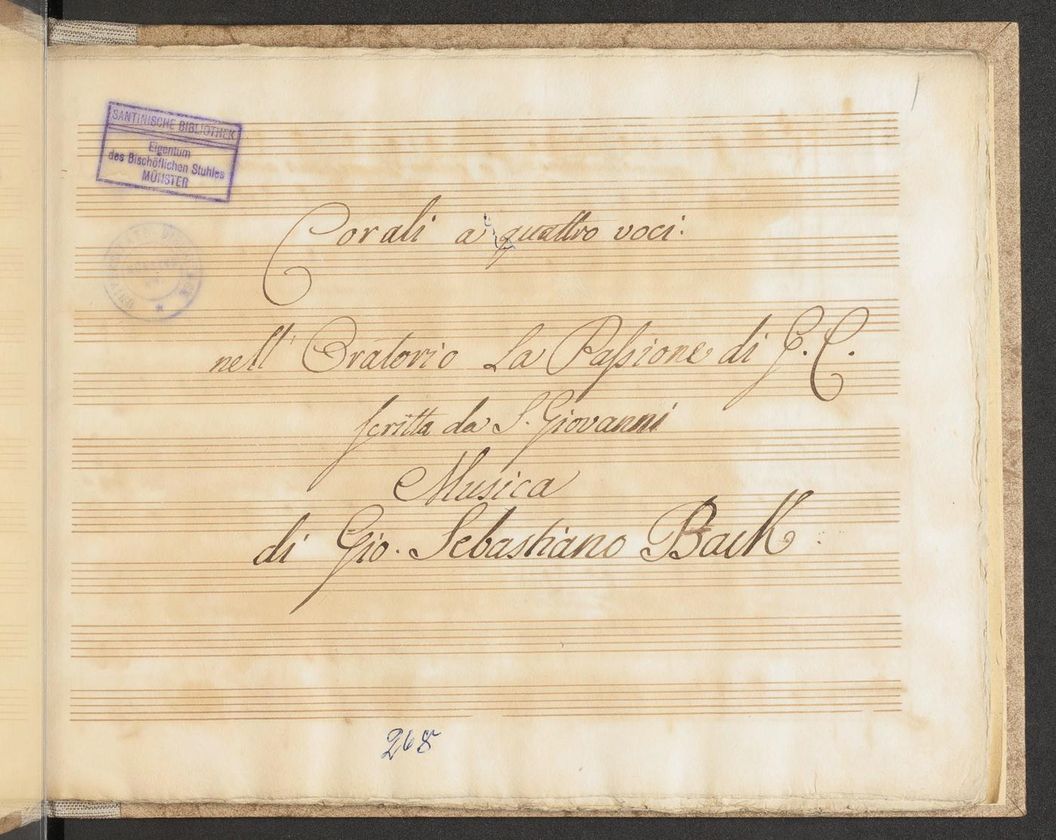 1
SANTINISCHE BIBLIOTHEK
Eigentum
des Bischöflichen Stuhles
MÜNSTER
Corali a quattro voci:
nell' Oratorio La Paſsione di G. C.
scritta da S. Giovanni
Musica
di Gio. Sebastiano Back
268